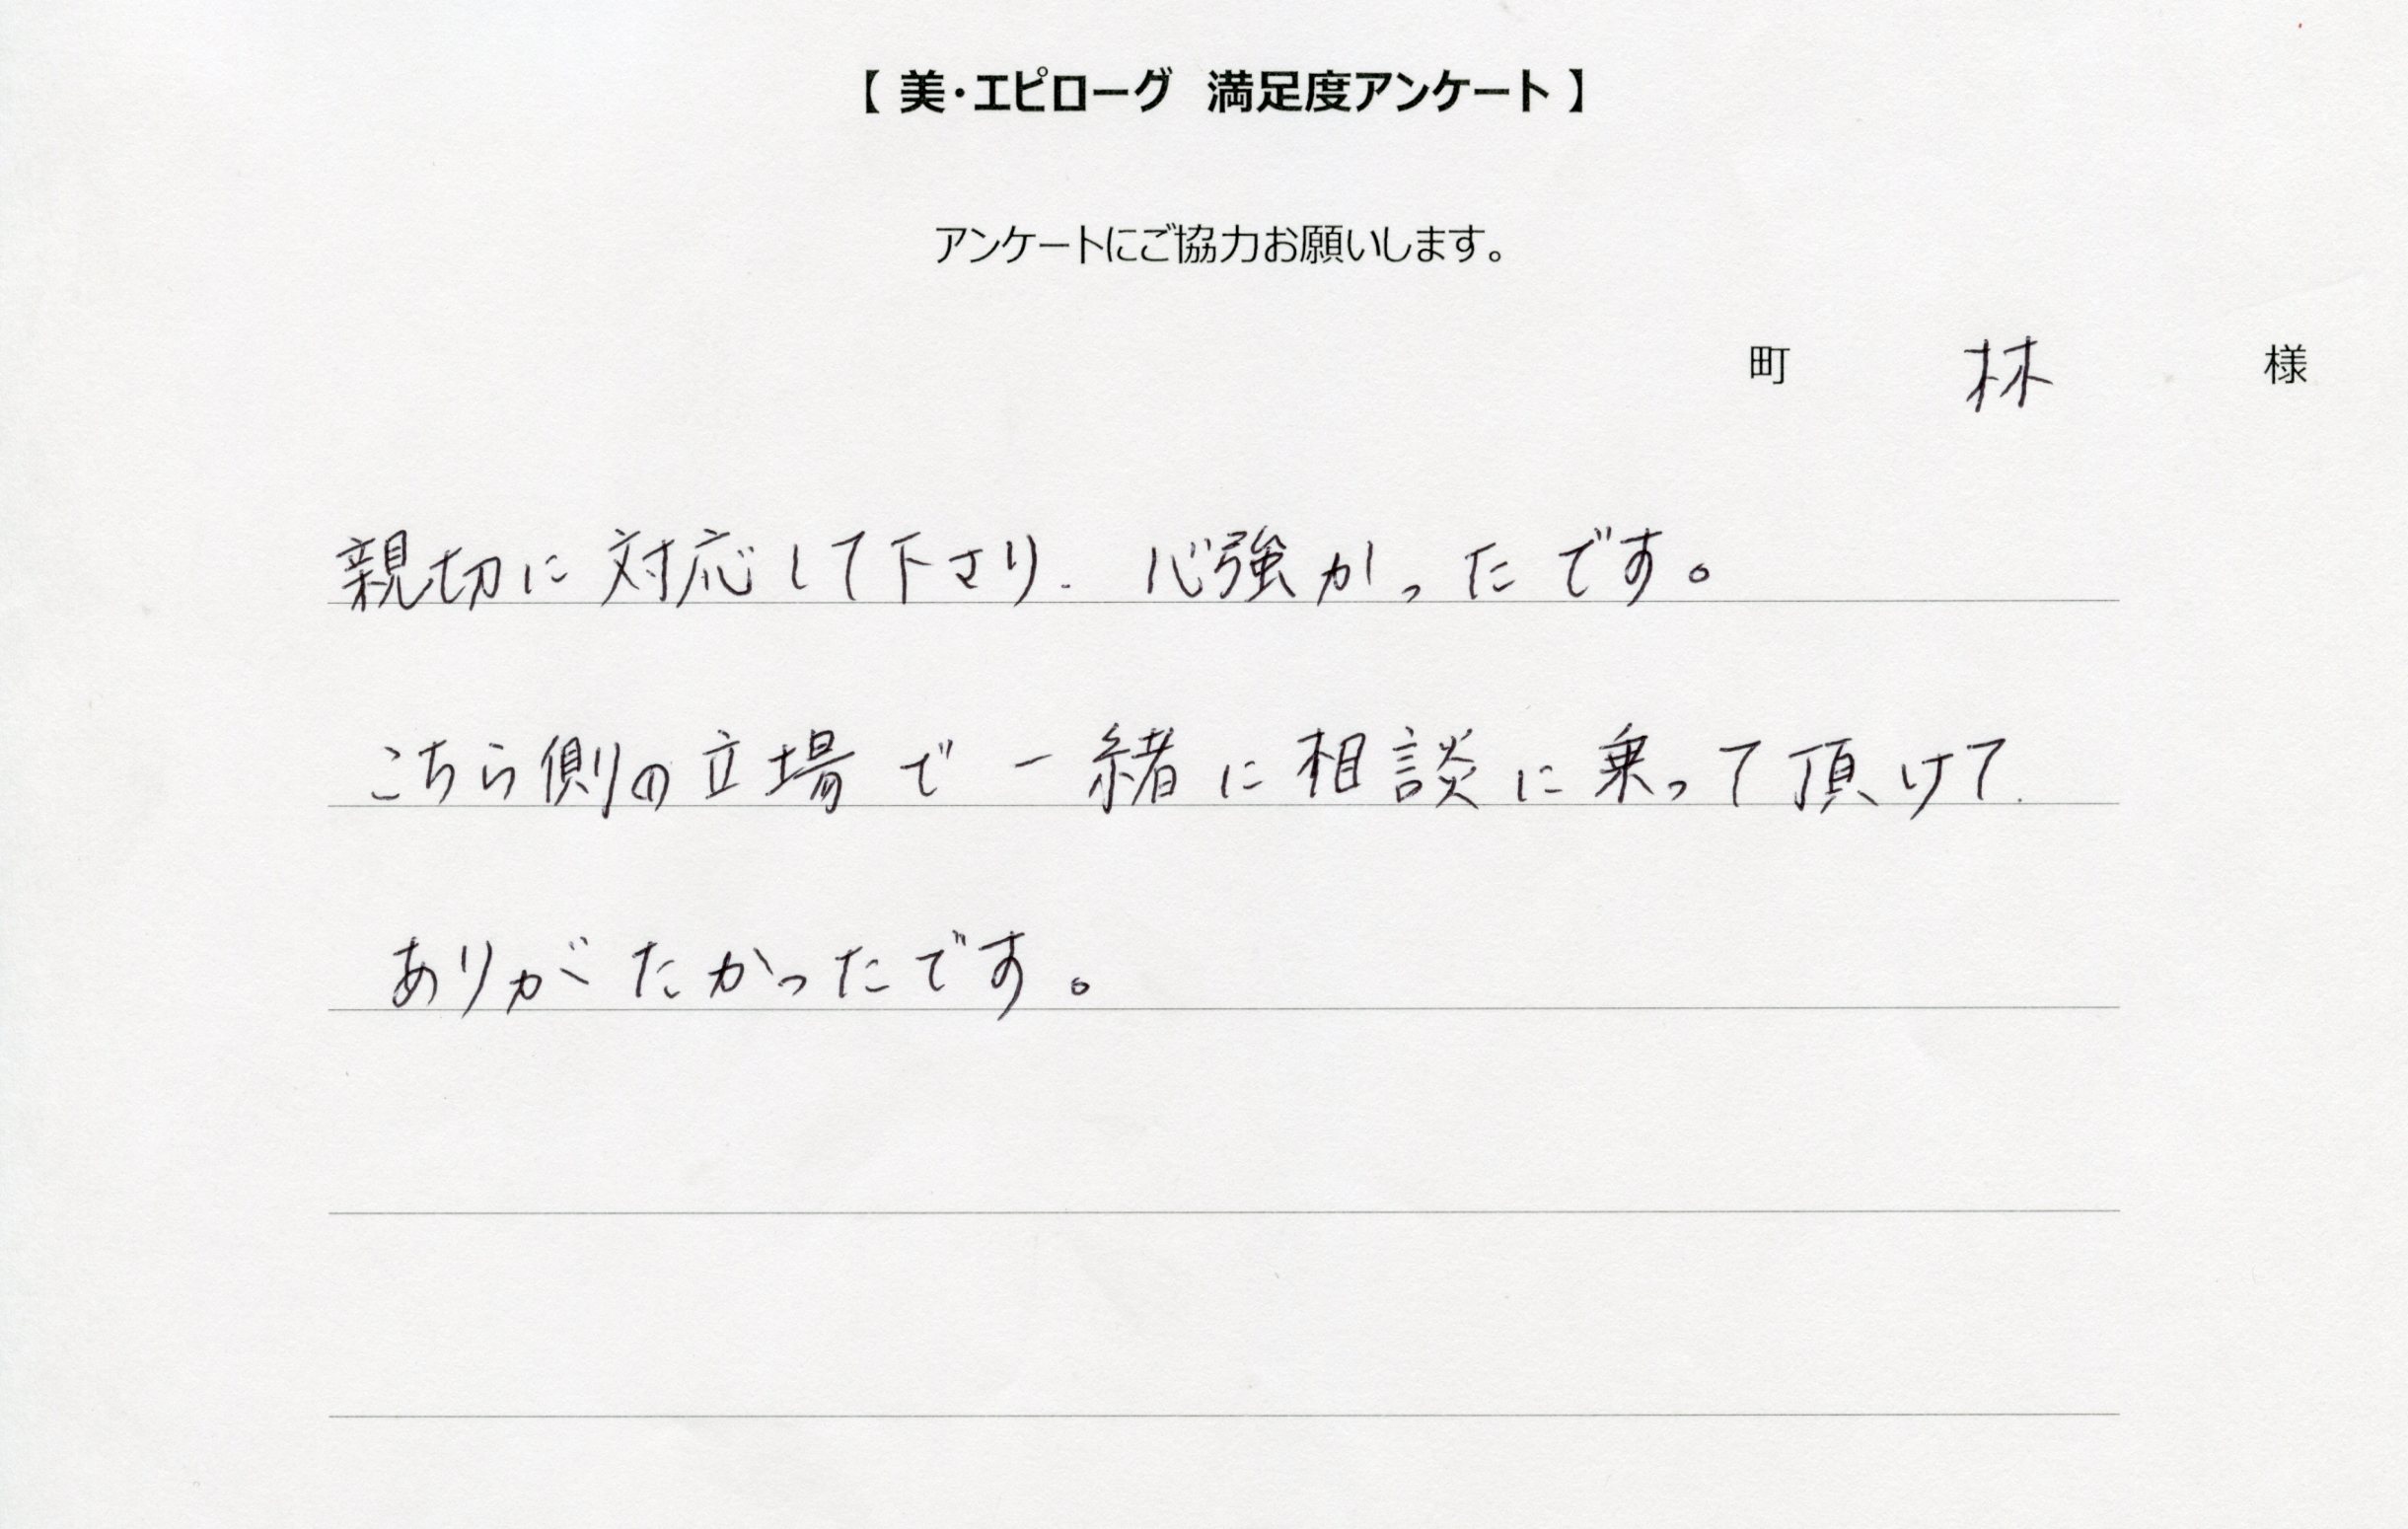 【 美・エピローグ　満足度アンケート 】
アンケートにご協力お願いします。
町　林　様
親切に対応して下さり. 心強かったです。
こちら側の立場で一緒に相談に乗って頂けて.
ありがたかったです。